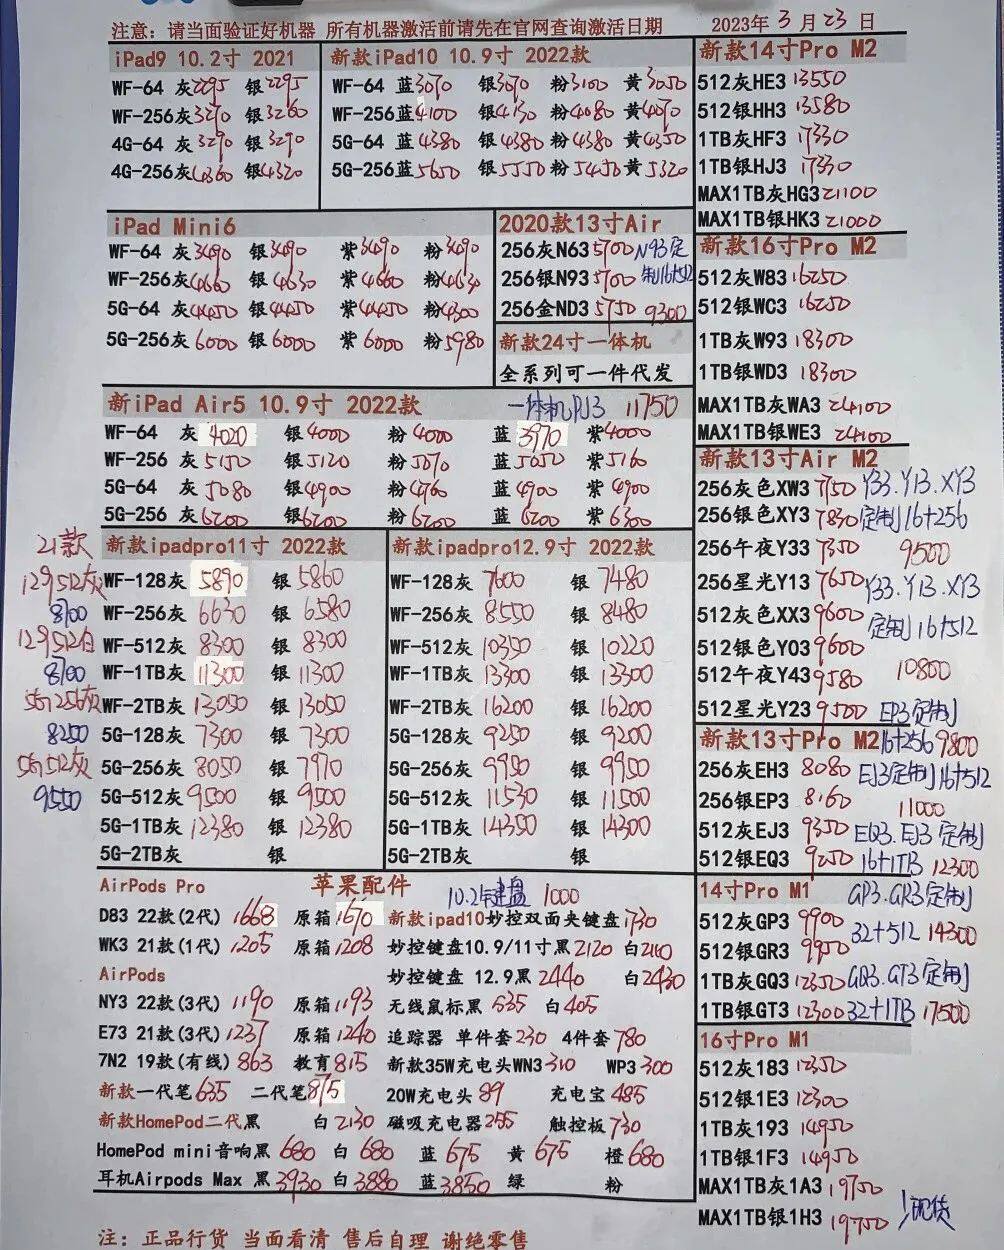 注意: 请当面验证好机器 所有机器激活前请先在官网查询激活日期
2023年 3 月 23 日
iPad9 10.2寸 2021
WF-64 灰2295 银2295
WF-256灰3270 银3260
4G-64 灰3290 银3290
4G-256灰4360 银4320
新款iPad10 10.9寸 2022款
WF-64 蓝3070 银3070 粉3100 黄3050
WF-256蓝4100 银4130 粉4080 黄4070
5G-64 蓝4380 银4380 粉4380 黄4350
5G-256蓝5650 银5550 粉5450 黄5320
iPad Mini6
WF-64 灰3490 银3490 紫3490 粉3490
WF-256灰4660 银4630 紫4660 粉4630
5G-64 灰4450 银4450 紫4450 粉4300
5G-256灰6000 银6000 紫6000 粉5980
2020款13寸Air
256灰N63 5700 N93定
256银N93 5700 制16+512
256金ND3 5750 9300
新款24寸一体机
全系列可一件代发
新iPad Air5 10.9寸 2022款 一体机PJ3 11750
WF-64 灰4020 银4000 粉4000 蓝3970 紫4000
WF-256 灰5150 银5120 粉5070 蓝5050 紫5160
5G-64 灰5080 银4900 粉4760 蓝4900 紫4900
5G-256 灰6200 银6200 粉6200 蓝6200 紫6300
21款
129512灰
8700
129512白
8700
5G1256灰
8250
5G1512灰
9550
新款ipadpro11寸 2022款
WF-128灰 5890 银 5860
WF-256灰 6630 银 6580
WF-512灰 8300 银 8300
WF-1TB灰 11300 银 11300
WF-2TB灰 13050 银 13050
5G-128灰 7300 银 7300
5G-256灰 8050 银 7970
5G-512灰 9500 银 9500
5G-1TB灰 12380 银 12380
5G-2TB灰 银
新款ipadpro12.9寸 2022款
WF-128灰 7600 银 7480
WF-256灰 8550 银 8480
WF-512灰 10350 银 10220
WF-1TB灰 13300 银 13300
WF-2TB灰 16200 银 16200
5G-128灰 9250 银 9200
5G-256灰 9950 银 9950
5G-512灰 11530 银 11500
5G-1TB灰 14350 银 14300
5G-2TB灰 银
苹果配件
AirPods Pro
D83 22款(2代) 1668 原箱1670
WK3 21款(1代) 1205 原箱1208
AirPods
NY3 22款(3代) 1190 原箱1193
E73 21款(3代) 1237 原箱1240
7N2 19款(有线) 863 教育815
新款一代笔635 二代笔875
新款HomePod二代黑 白2130
HomePod mini音响黑680 白 680 蓝 675 黄 675 橙680
耳机Airpods Max 黑3930 白3880 蓝3850 绿 粉
10.2键盘 1000
新款ipad10妙控双面夹键盘1730
妙控键盘10.9/11寸黑2120 白2160
妙控键盘 12.9黑2440 白2430
无线鼠标黑 535 白405
追踪器 单件套230 4件套780
新款35W充电头WN3310 WP3300
20W充电头 89 充电宝 485
磁吸充电器255 触控板730
注: 正品行货 当面看清 售后自理 谢绝零售
新款14寸Pro M2
512灰HE3 13550
512银HH3 13580
1TB灰HF3 17330
1TB银HJ3 17330
MAX1TB灰HG3 21100
MAX1TB银HK3 21000
新款16寸Pro M2
512灰W83 16250
512银WC3 16250
1TB灰W93 18300
1TB银WD3 18300
MAX1TB灰WA3 24100
MAX1TB银WE3 24100
新款13寸Air M2
256灰色XW3 7750 Y33.Y13.XY3
256银色XY3 7830 定制16+256
256午夜Y33 7350 9500
256星光Y13 7650 Y33.Y13.XY3
512灰色XX3 9600 定制16+512
512银色Y03 9600
512午夜Y43 9580 10800
512星光Y23 9500 EP3定制
新款13寸Pro M2 16+256 9800
256灰EH3 8080 EJ3定制16+512
256银EP3 8160 11000
512灰EJ3 9350 EQ3.EJ3定制
512银EQ3 9250 16+1TB 12300
14寸Pro M1 GP3.GR3定制
512灰GP3 9900 32+512 14300
512银GR3 9950
1TB灰GQ3 12350 GQ3.GT3定制
1TB银GT3 12300 32+1TB 17500
16寸Pro M1
512灰183 12350
512银1E3 12300
1TB灰193 14950
1TB银1F3 14950
MAX1TB灰1A3 19750
MAX1TB银1H3 19750 现货